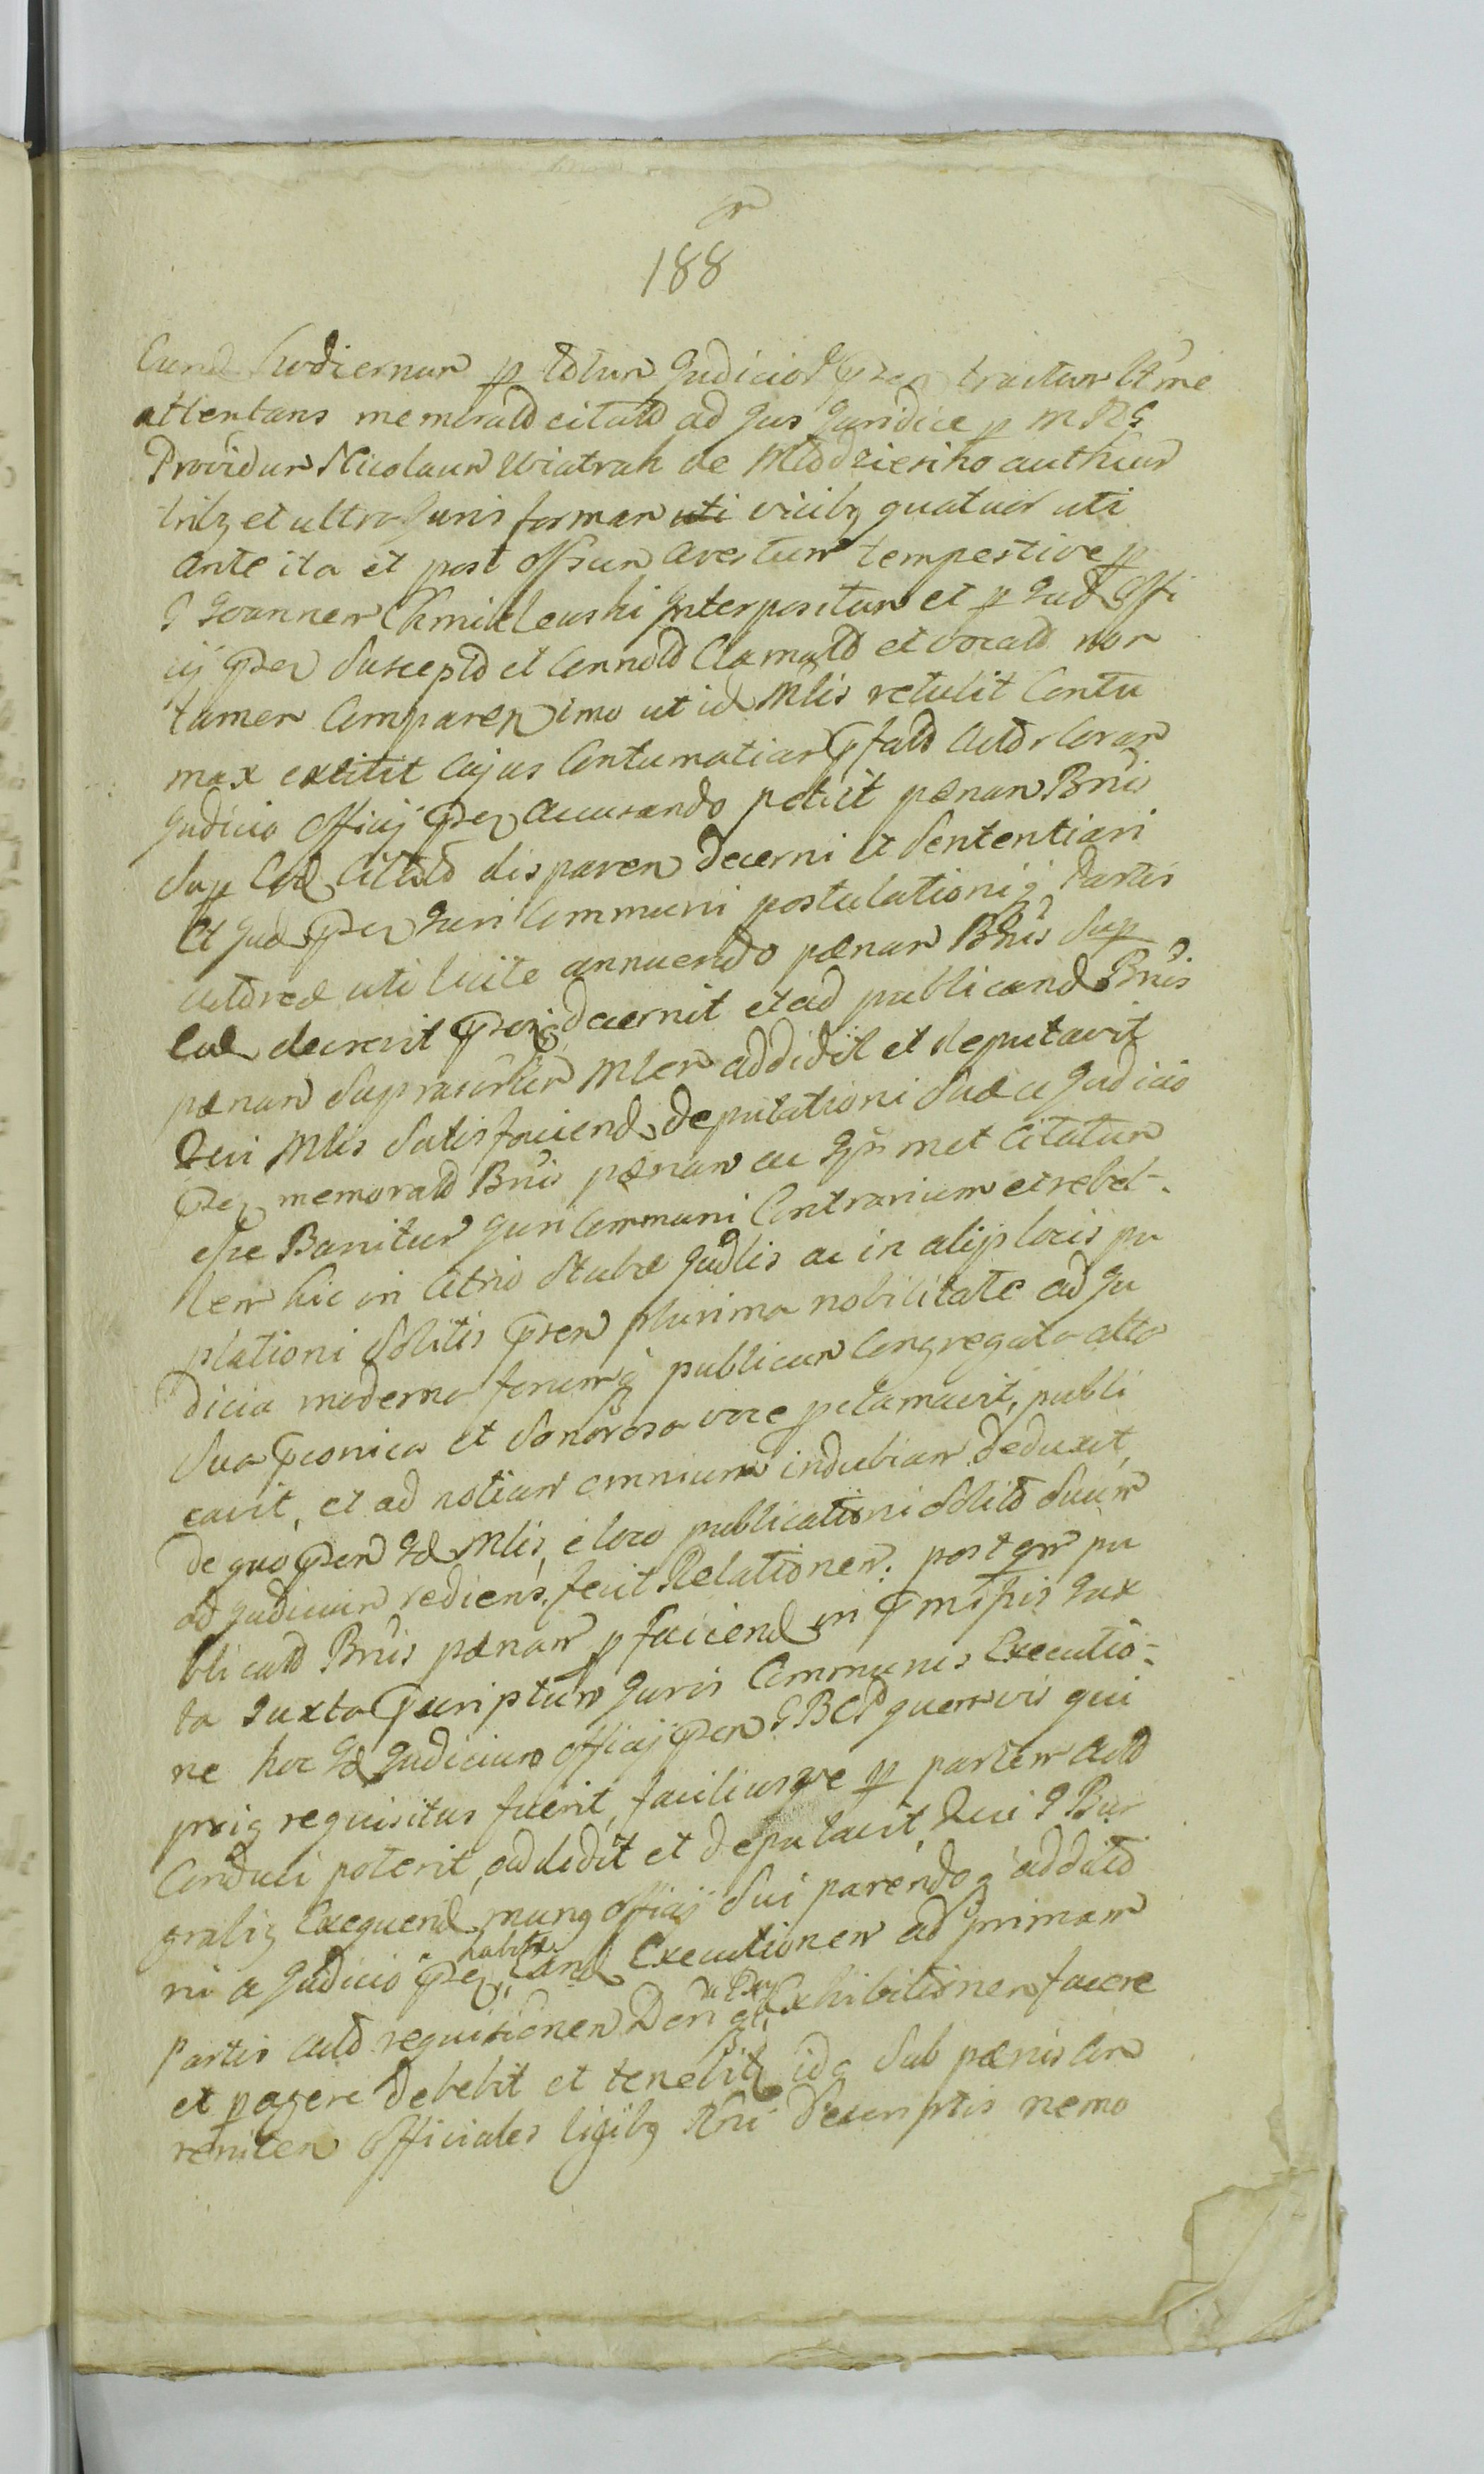 188
Cund hodiernum p totum Judicior pnen tractum Itme
attentans memorato citato ad Jus Juridice p MRG
Providum Nicolaum Wiatrak de Młodziesino authum
tribq et ultra Juris formam uti vicibq quatuor uti
ante ita et post offsum arestum tempestive p
G Joannem Chmielewski Interpositum et p Jud Offi
cij pnen suscepto et Connoto Clamato et vocato non
tamen Comparen imo ut id Mlis retulit Contu
max extitit Cujus Contumatiam pfato Actor Coram
Judicio Officij pnen accusando petiit pœnam Bnis
sup Eod Citato disparen decerni et sententiari
Et Jud pnen Juri Communi postulationiq Partis
actoreæ uti licite annuendo pœnam Bnis sup
Eod decrevit decernit et ad publicand Bnis
pœnam suprascrtam Mlem addidit et deputavit
Qui Mlis satisfaciend deputationi suæ a Judicio
pnen memorato Bnis pœnam ac Ipm met Citatum
esse Banitum Juri Communi Contrarium et rebel-
lem hic in Atrio Stubæ Judlis ac in alijs locis pu
plationi solitis pnen plurima nobilitate ad Ju
dicia moderna forumq publicum Congregata alta
sua pconica et sonorosa voce pclamavit, publi
cavit, et ad notiam omnium indubiam deduxit,
de quo pnen Id Mlis, e loco publicationi solito suum
ad Judicium rediens, fecit Relationem. post qm pu
blicato Bnis pœnam p faciend in pmissis Jux
ta Juxta pscriptum Juris Communis Executio-
ne hoc Id Judicium officij pnen GBCP quemvis qui
proiq requisitus fuerit, faciliusqve p partem acto
Conduci poterit, addidit et deputavit Qui G Bur
grabiq Exequend munq officij sui parendoq addito
ni a Judicio pnen habita Eand Executionem ad primam
Partis acto requisitionem Exhibitionem facere
et pagere debebit et tenebit idq sub pœnis con
reniten Officiales ligibq descriptis nemo